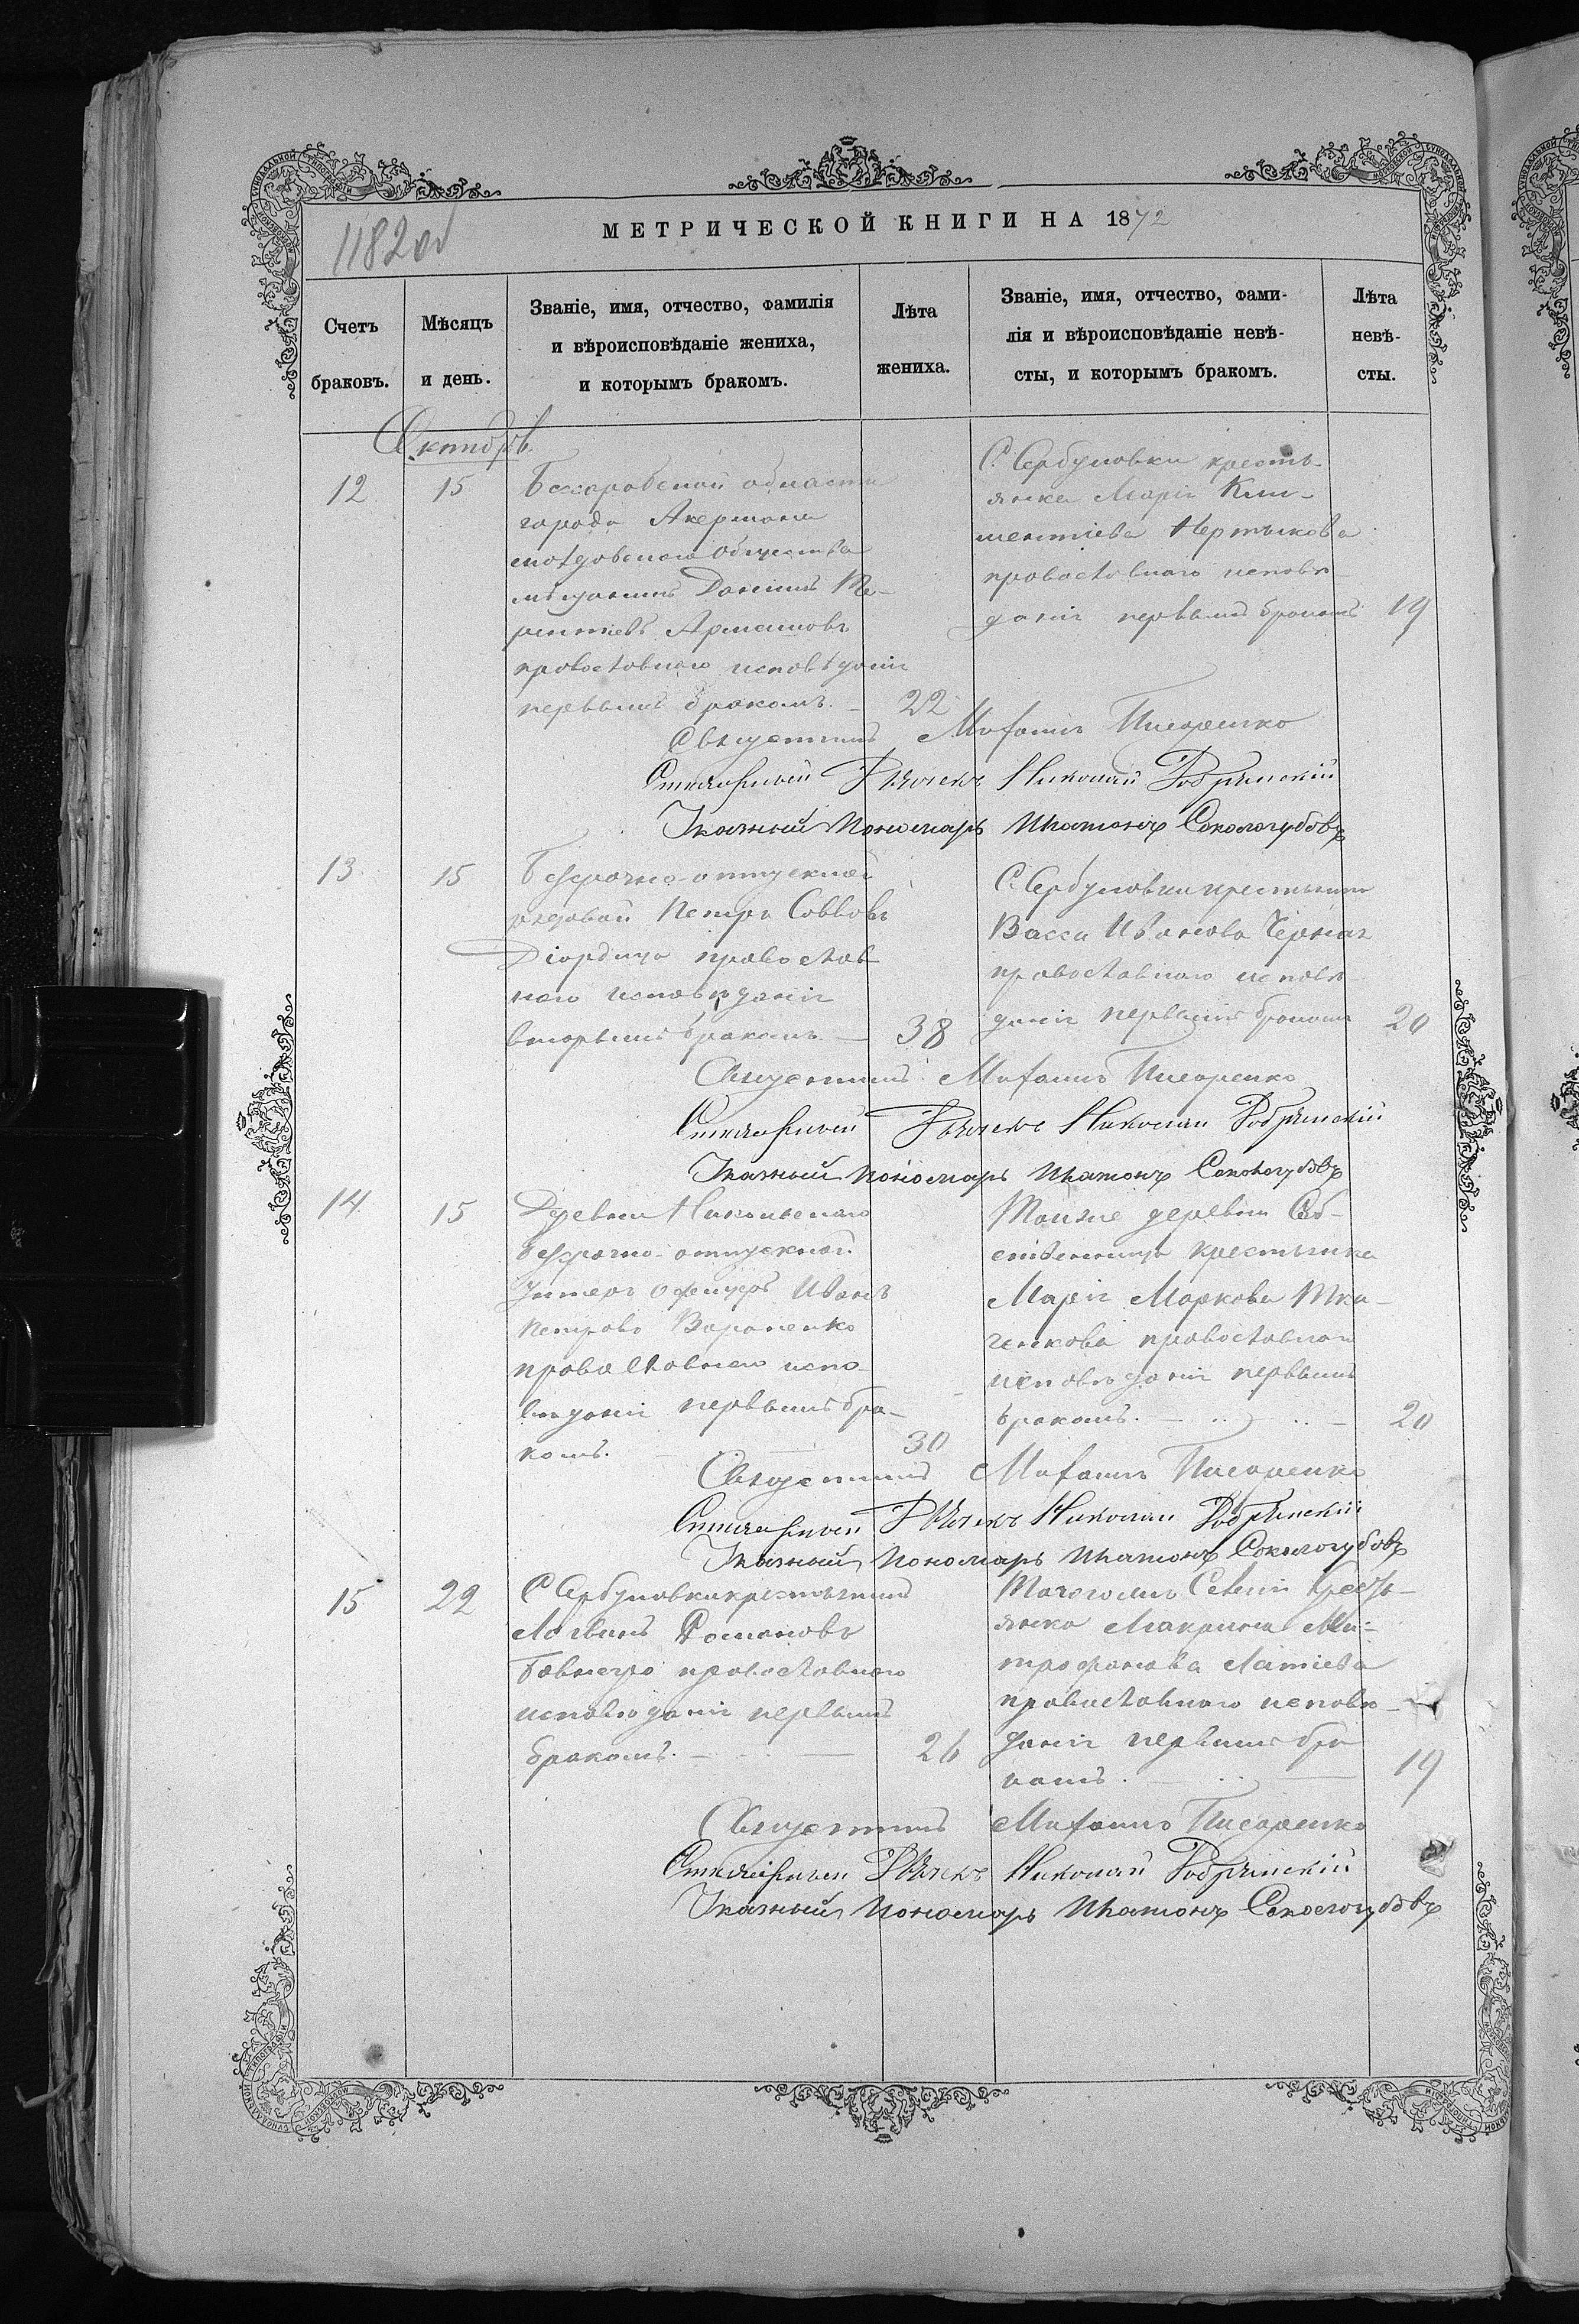 1182 об
МЕТРИЧЕСКОЙ КНИГИ НА 1872
Счетъ
браковъ.
Мѣсяцъ
и день.
Званіе, имя, отчество, фамилія
и вѣроисповѣданіе жениха,
и которымъ бракомъ.
Лѣта
жениха.
Званіе, имя, отчество, фами-
лія и вѣроисповѣданіе невѣ-
сты, и которымъ бракомъ.
Лѣта
невѣ-
сты.
Октябрь
12
15
Бессарабской области
города Акермана
общества
мѣщанинъ Даніилъ Те-
рентіевъ
православнаго исповѣданія
первымъ бракомъ.
22
С. Сербуловки кресть-
янка Марія Кли-
ментіева
православнаго исповѣ-
данія первымъ бракомъ
19
Священникъ Михаилъ Писаренко
Николай Добрянскій
Указный Пономарь Платонъ Сокологубовъ
13
15
Безсрочно-отпускной
рядовой Петръ Саввовъ
Діордица православ
наго исповѣданія
вторымъ бракомъ
38
С. Сербуловки крестьянка
Васса Иванова Черная
православнаго исповѣ
данія первымъ бракомъ
20
Священникъ Михаилъ Писаренко
Николай Добрянскій
Указный Пономарь Платонъ Сокологубовъ
14
15
Деревни Никольскаго
безсрочно-отпускной
Унтеръ офицеръ Иванъ
Петровъ Вороненко
православнаго испо
вѣданія первымъ бра-
комъ.
30
Тойже деревни Соб-
ственница крестьянка
Марія Маркова Тка-
ченкова православнаго
исповѣданія первымъ
бракомъ.
20
Священникъ Михаилъ Писаренко
Николай Добрянскій
Указный Пономарь Платонъ Сокологубовъ
15
22
С Сербуловки крестьянинъ
Логвинъ Романовъ
православнаго
исповѣданія первымъ
бракомъ.
26
Тогожъ Селенія Кресть-
янка Макрина Ми-
трофанова
православнаго исповѣ-
данія первымъ бра
комъ.
19
Священникъ Михаилъ Писаренко
Николай Добрянскій
Указный Пономарь Платонъ Сокологубовъ